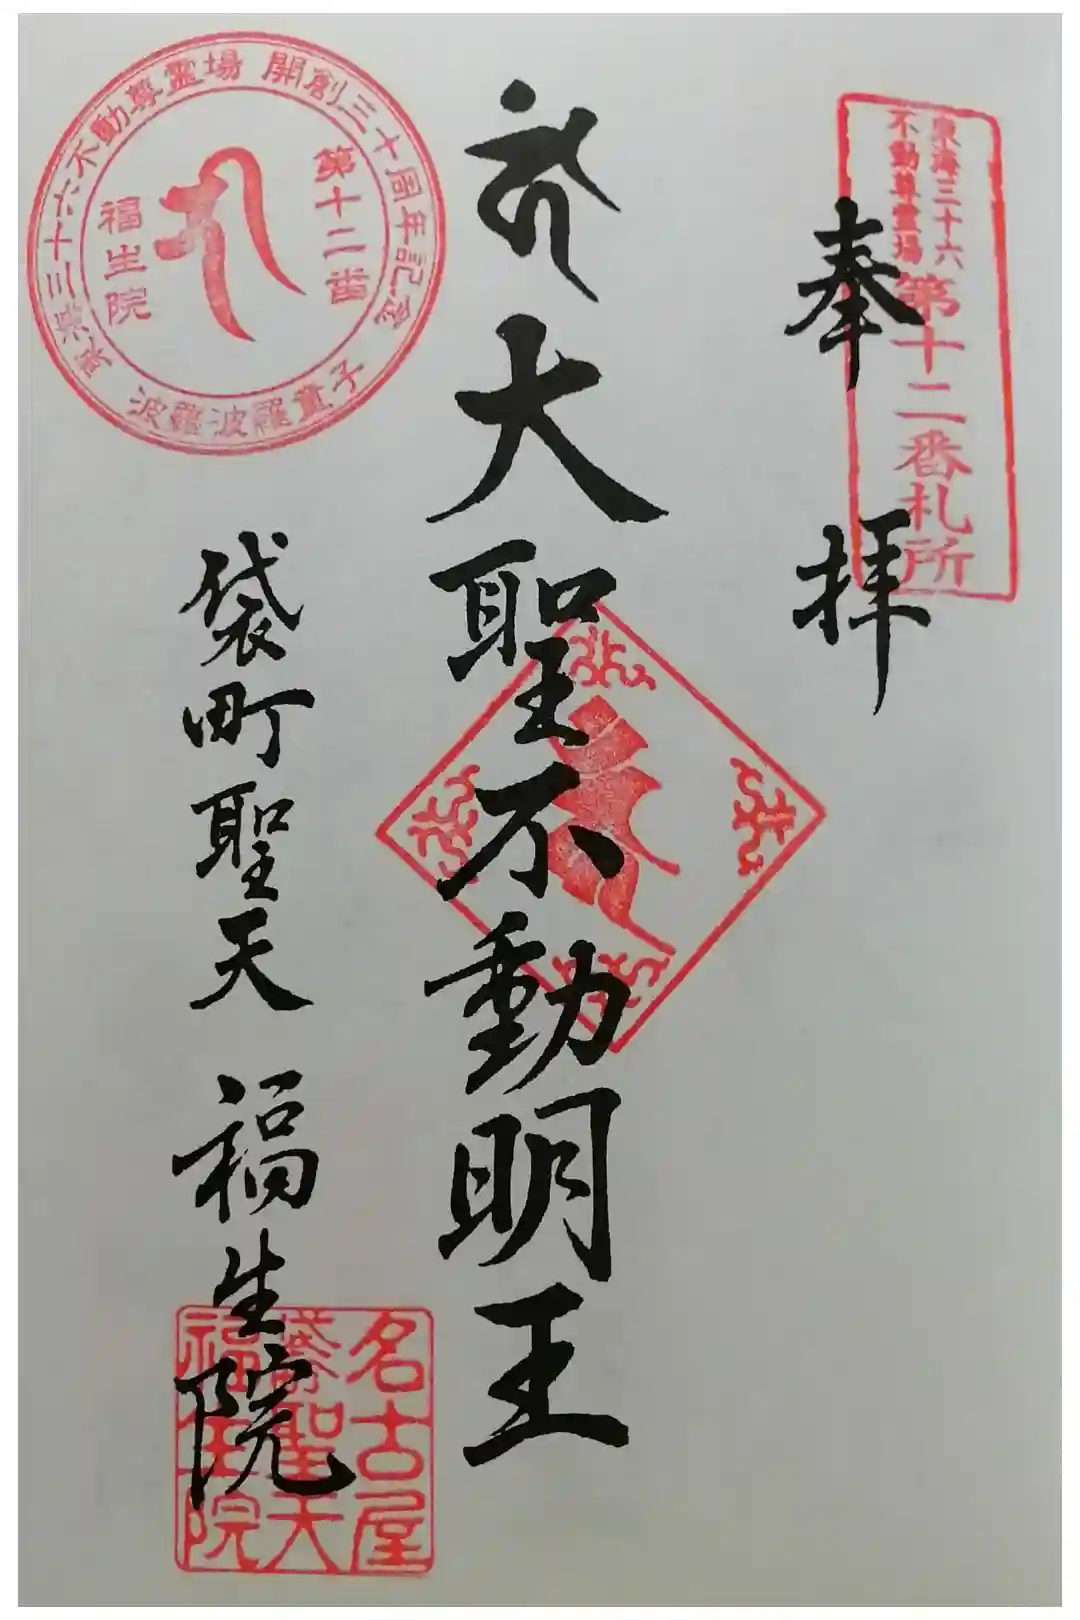 東海三十六
不動尊霊場
第十二番札所
奉拝
大聖不動明王
東海三十六不動尊霊場 開創三十周年記念
第十二番
福生院
波羅波羅童子
袋町聖天 福生院
名古屋
袋町聖天
福生院